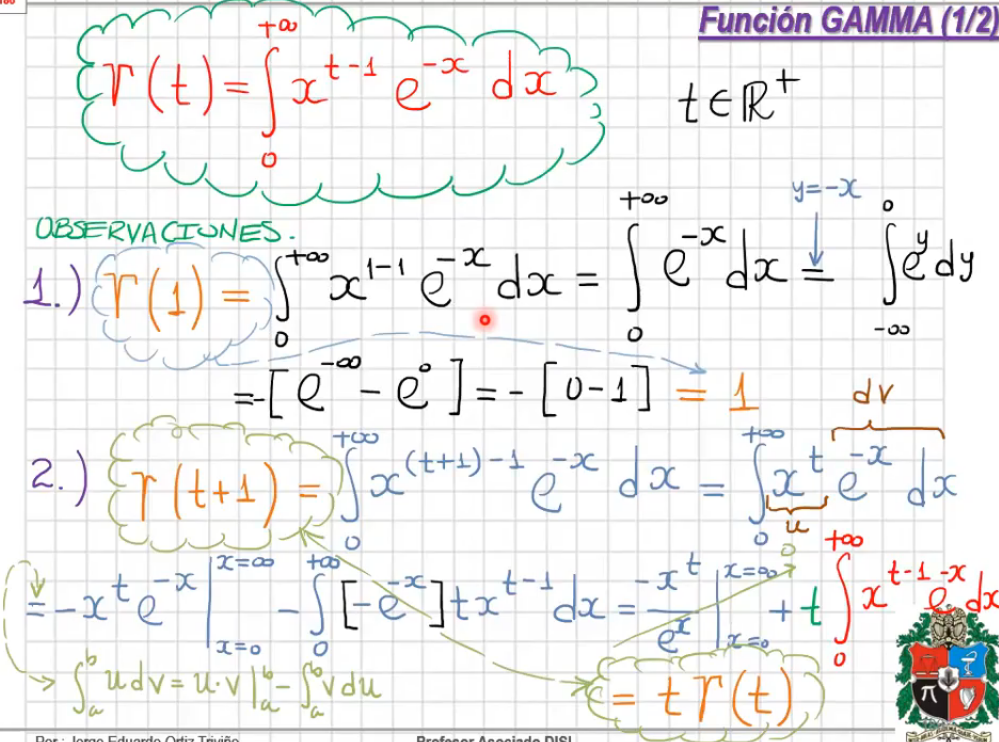 Función GAMMA (1/2)
Γ(t) = ∫₀^{+∞} x^{t-1} e^{-x} dx
t ∈ ℝ⁺
OBSERVACIONES.
y=-x
1.) Γ(1) = ∫₀^{+∞} x^{1-1} e^{-x} dx = ∫₀^{+∞} e^{-x} dx = ∫_{-∞}^{0} e^{y} dy
= -[e^{-∞} - e^{0}] = -[0-1] = 1
dv
2.) Γ(t+1) = ∫₀^{+∞} x^{(t+1)-1} e^{-x} dx = ∫₀^{+∞} x^{t} e^{-x} dx
u
0
= -x^{t} e^{-x} |_{x=0}^{x=∞} - ∫₀^{+∞} [-e^{-x}] t x^{t-1} dx = -x^{t}/e^{x} |_{x=0}^{x=∞} + t ∫₀^{+∞} x^{t-1} e^{-x} dx
∫_a^b u dv = u·v |_a^b - ∫_a^b v du
= t Γ(t)
π
Por: Jorge Eduardo Ortiz Triviño
Profesor Asociado DISI